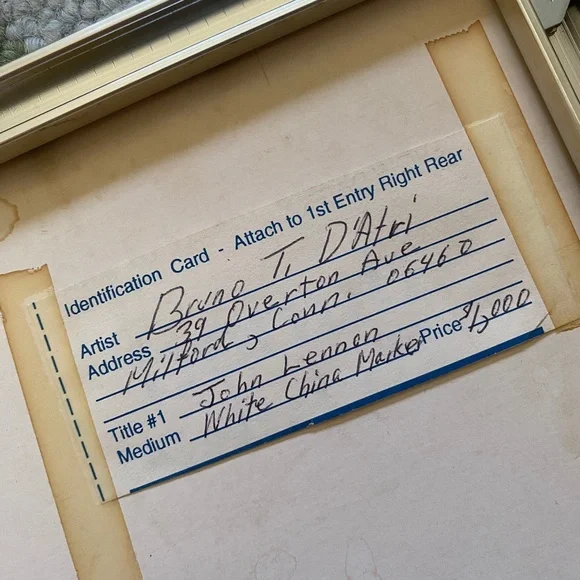 Identification Card - Attach to 1st Entry Right Rear
Artist Bruno T. D'Atri
Address 39 Overton Ave
Milford, Conn. 06460
Title #1 John Lennon
Medium White China Marker Price $1,000